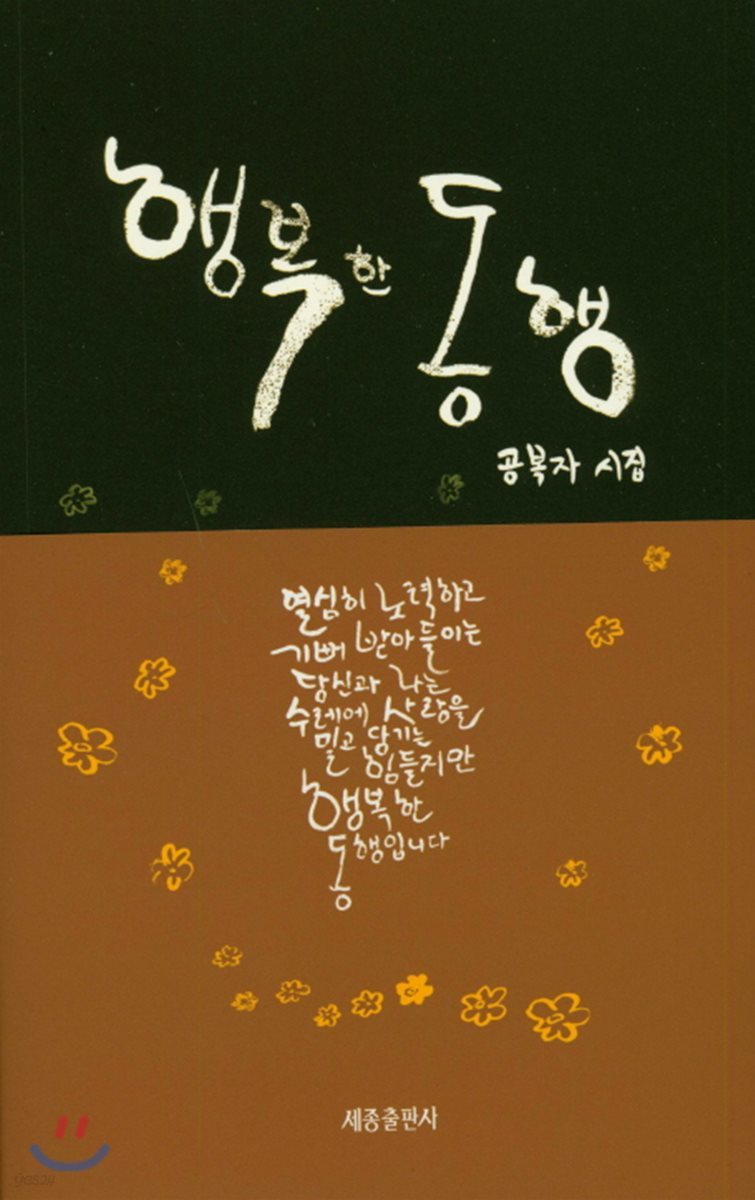 행복한 동행
공복자 시집
열심히 노력하고
기뻐 받아들이는
당신과 나는
수레에 사랑을
밀고 당기는
힘들지만
행복한
동행입니다
세종출판사
yes24